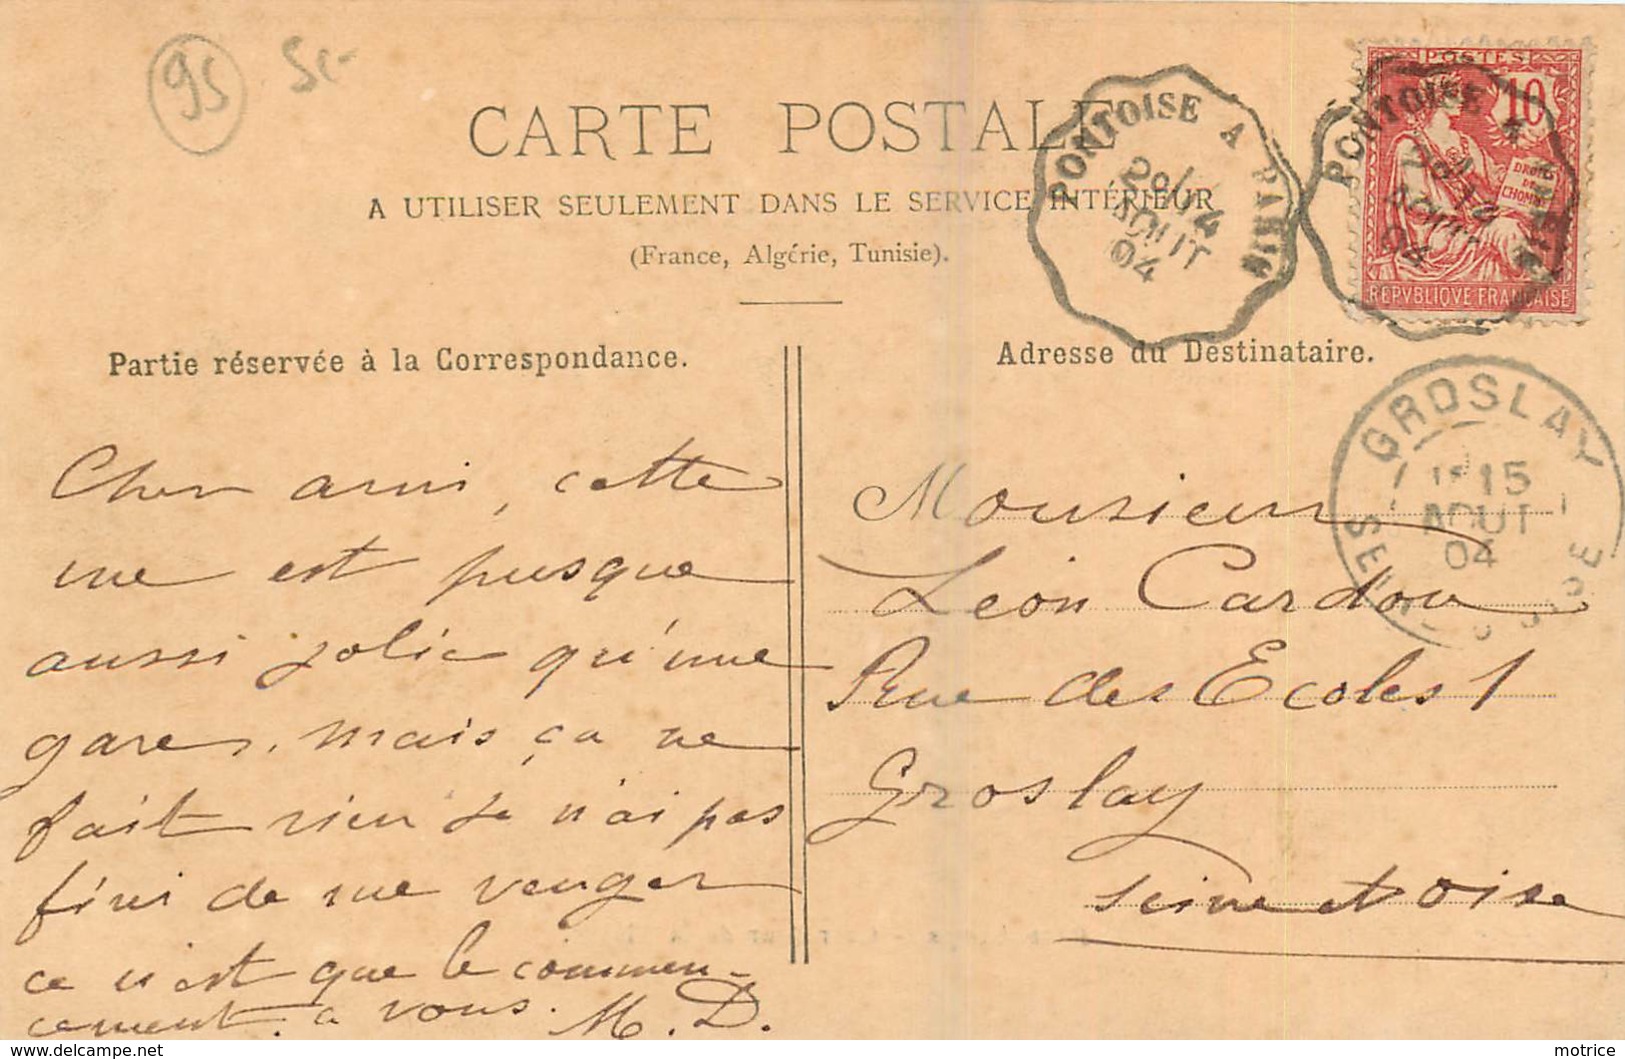 95 5c-
CARTE POSTALE
A UTILISER SEULEMENT DANS LE SERVICE INTÉRIEUR
(France, Algérie, Tunisie).
PONTOISE A PARIS
2º/14
AOUT
04
POSTES
10
DROITS
DE
L'HOMME
REPVBLIQVE FRANÇAISE
PONTOISE A PARIS
AOUT
04
Partie réservée à la Correspondance.
Cher ami, cette
vue est presque
aussi jolie qu'une
gare, mais ça ne
fait rien je n'ai pas
fini de me venger
ce n'est que le commen-
cement. à vous. M. D.
Adresse du Destinataire.
GROSLAY
15
AOUT
04
Monsieur
Léon Cardou
Rue des Ecoles 1
Groslay
Seine et Oise
https://www.delcampe.net
motrice